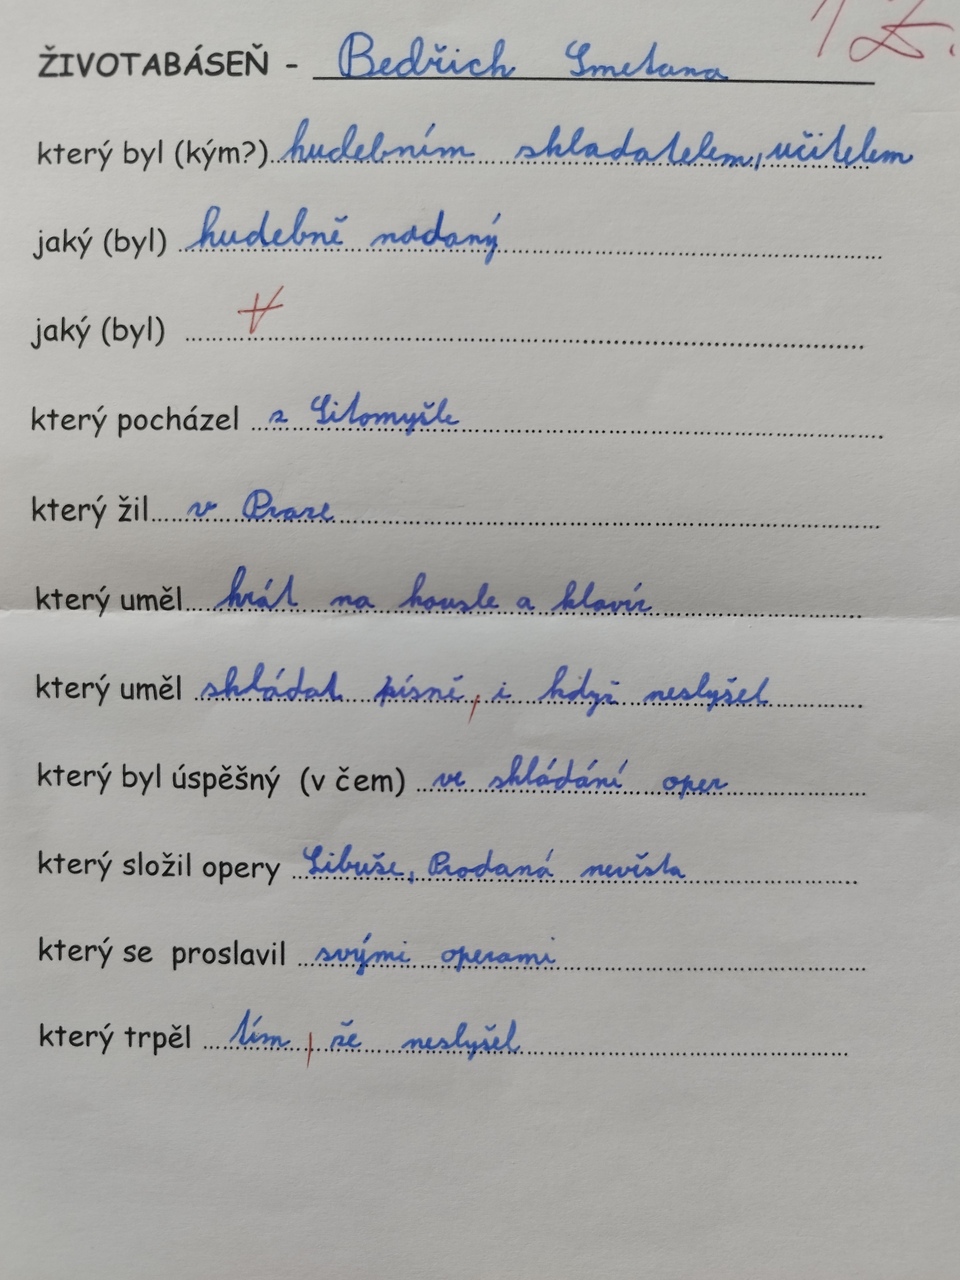 ŽIVOTABÁSEŇ - Bedřich Smetana
který byl (kým?) hudebním skladatelem, učitelem
jaký (byl) hudebně nadaný
jaký (byl)
který pocházel z Litomyšle
který žil v Praze
který uměl hrát na housle a klavír
který uměl skládat písně, i když neslyšel
který byl úspěšný (v čem) ve skládání oper
který složil opery Libuše, Prodaná nevěsta
který se proslavil svými operami
který trpěl tím, že neslyšel